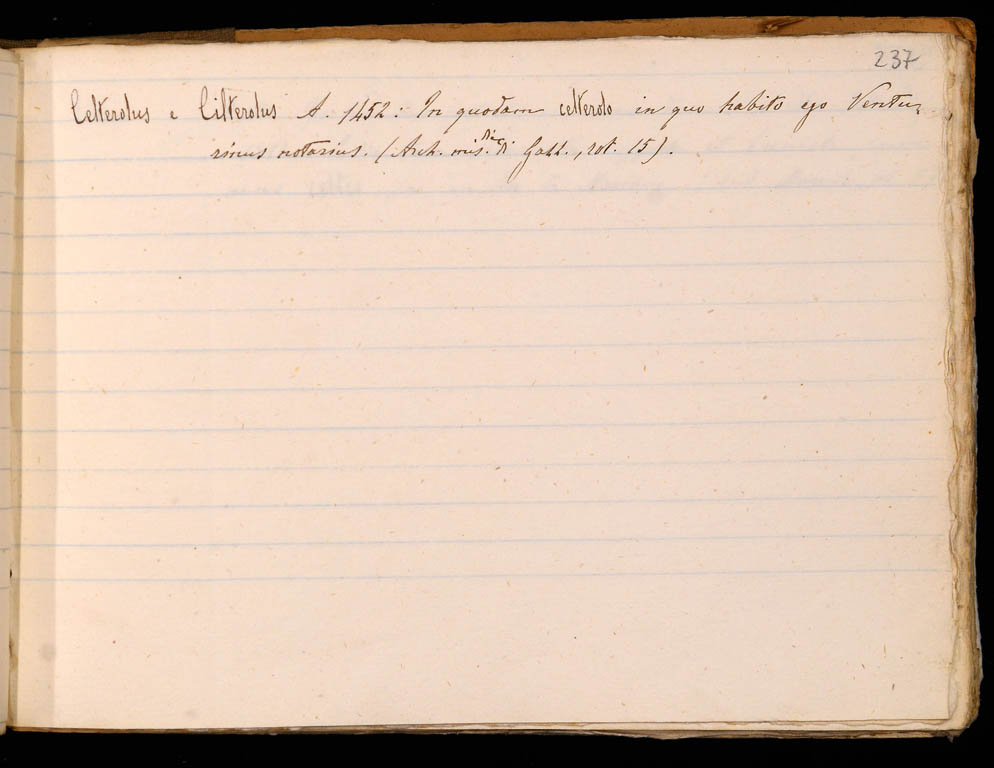 237
Celterolus e Cilterolus A. 1452: In quodam celterolo in quo habito ego Ventu-
rinus notarius. (Arch. mis. di Gall., rot. 15).